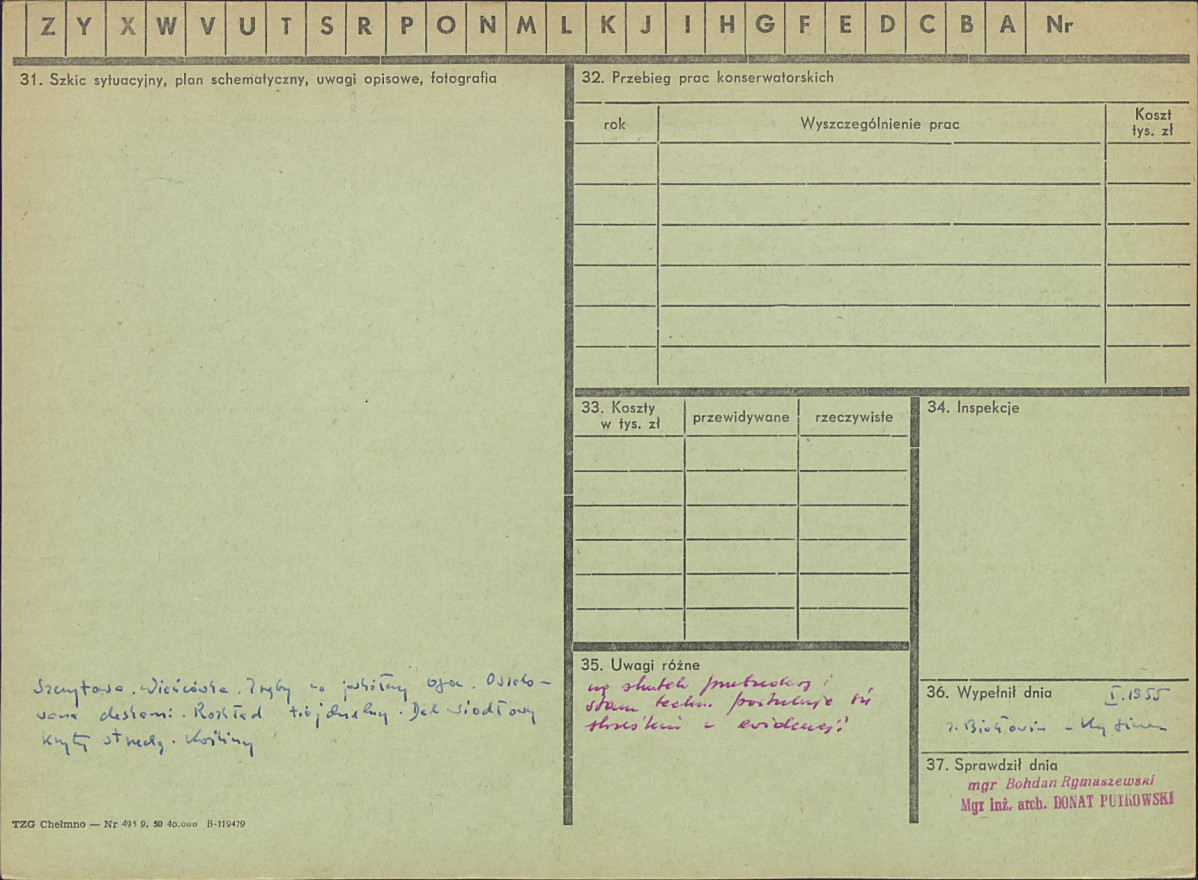 Z Y X W V U T S R P O N M L K J I H G F E D C B A Nr
31. Szkic sytuacyjny, plan schematyczny, uwagi opisowe, fotografia
Szczytowa. Wieńcówka. Zręby na jaskółczy ogon. Oszalo-
wana deskami. Rozkład trójdzielny. Dach siodłowy
kryty strzechą.
TZG Chełmno — Nr 495 9. 50 40.000 B-119479
32. Przebieg prac konserwatorskich
rok Wyszczególnienie prac Koszt
tys. zł
33. Koszty
w tys. zł przewidywane rzeczywiste
34. Inspekcje
35. Uwagi różne
na skutek przebudowy i
stanu techn. postuluje się
skreślenie z ewidencji!
36. Wypełnił dnia I.1955
37. Sprawdził dnia
mgr Bohdan Rymaszewski
Mgr inż. arch. DONAT PUTKOWSKI